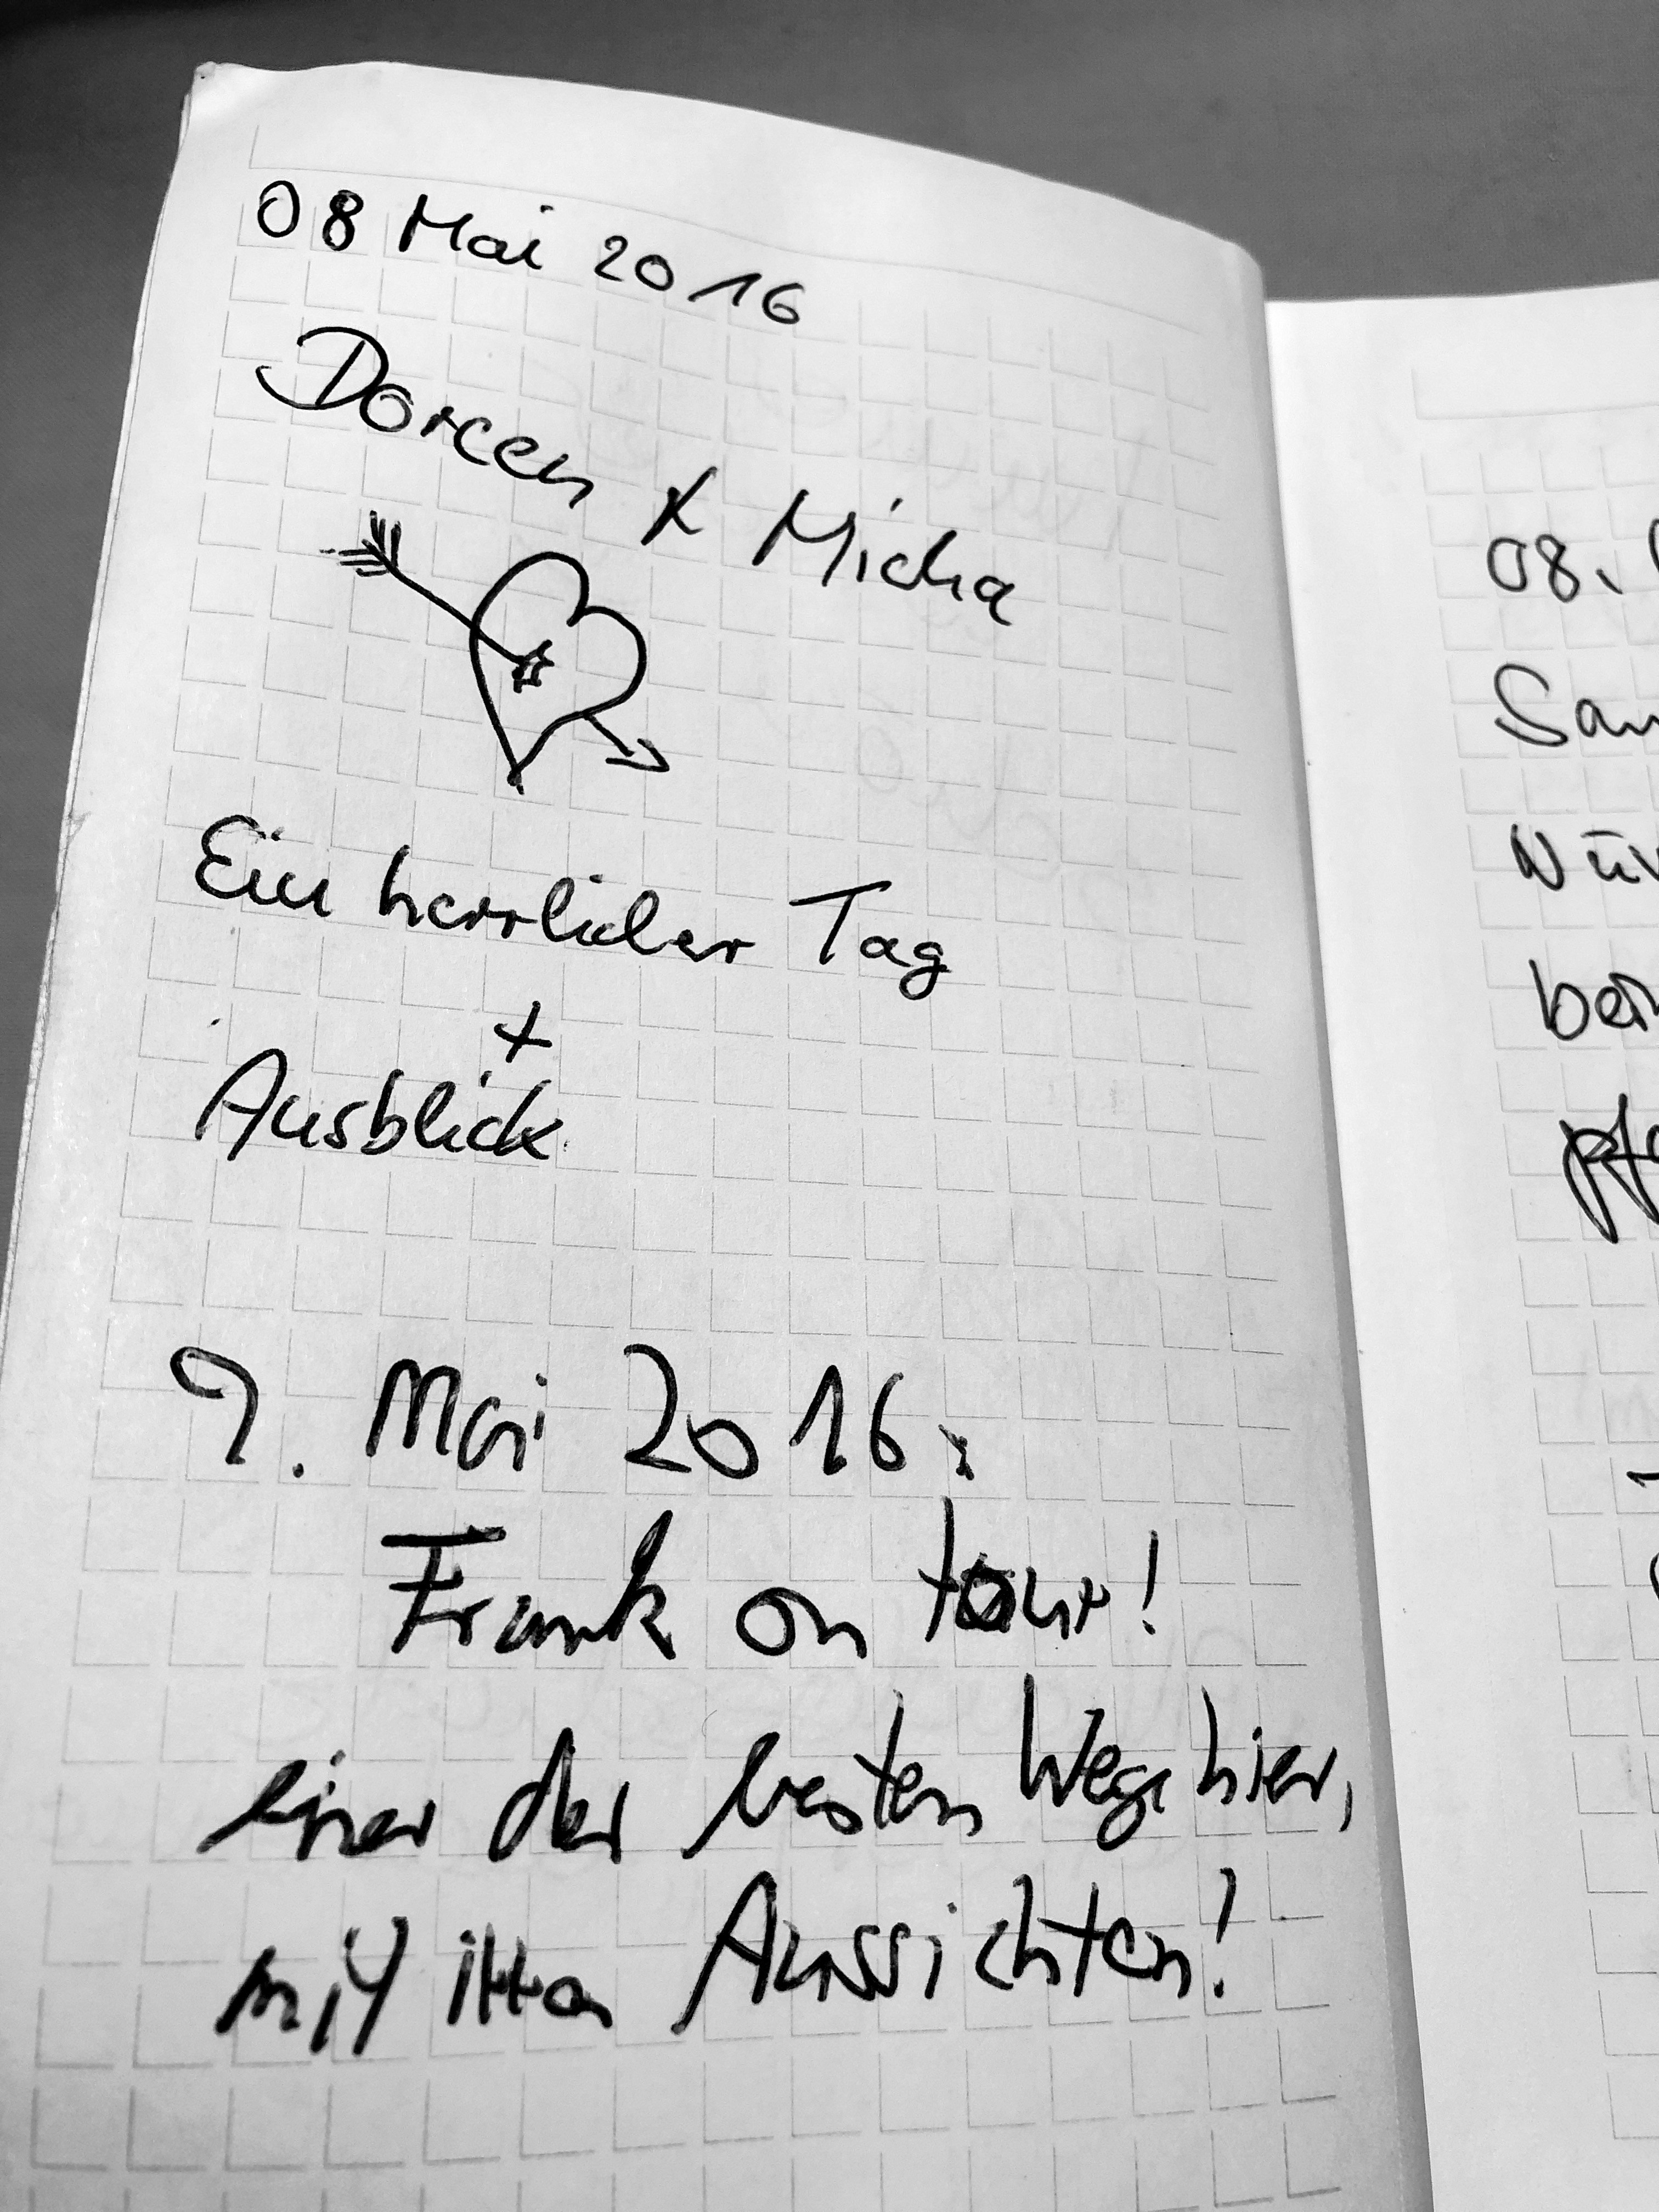 08 Mai 2016
Doreen + Micha
Ein herrlicher Tag
+
Ausblick
9. Mai 2016:
Frank on tour!
einer der besten Wege hier,
mit Aussichten!
08.
San
Nür
bei